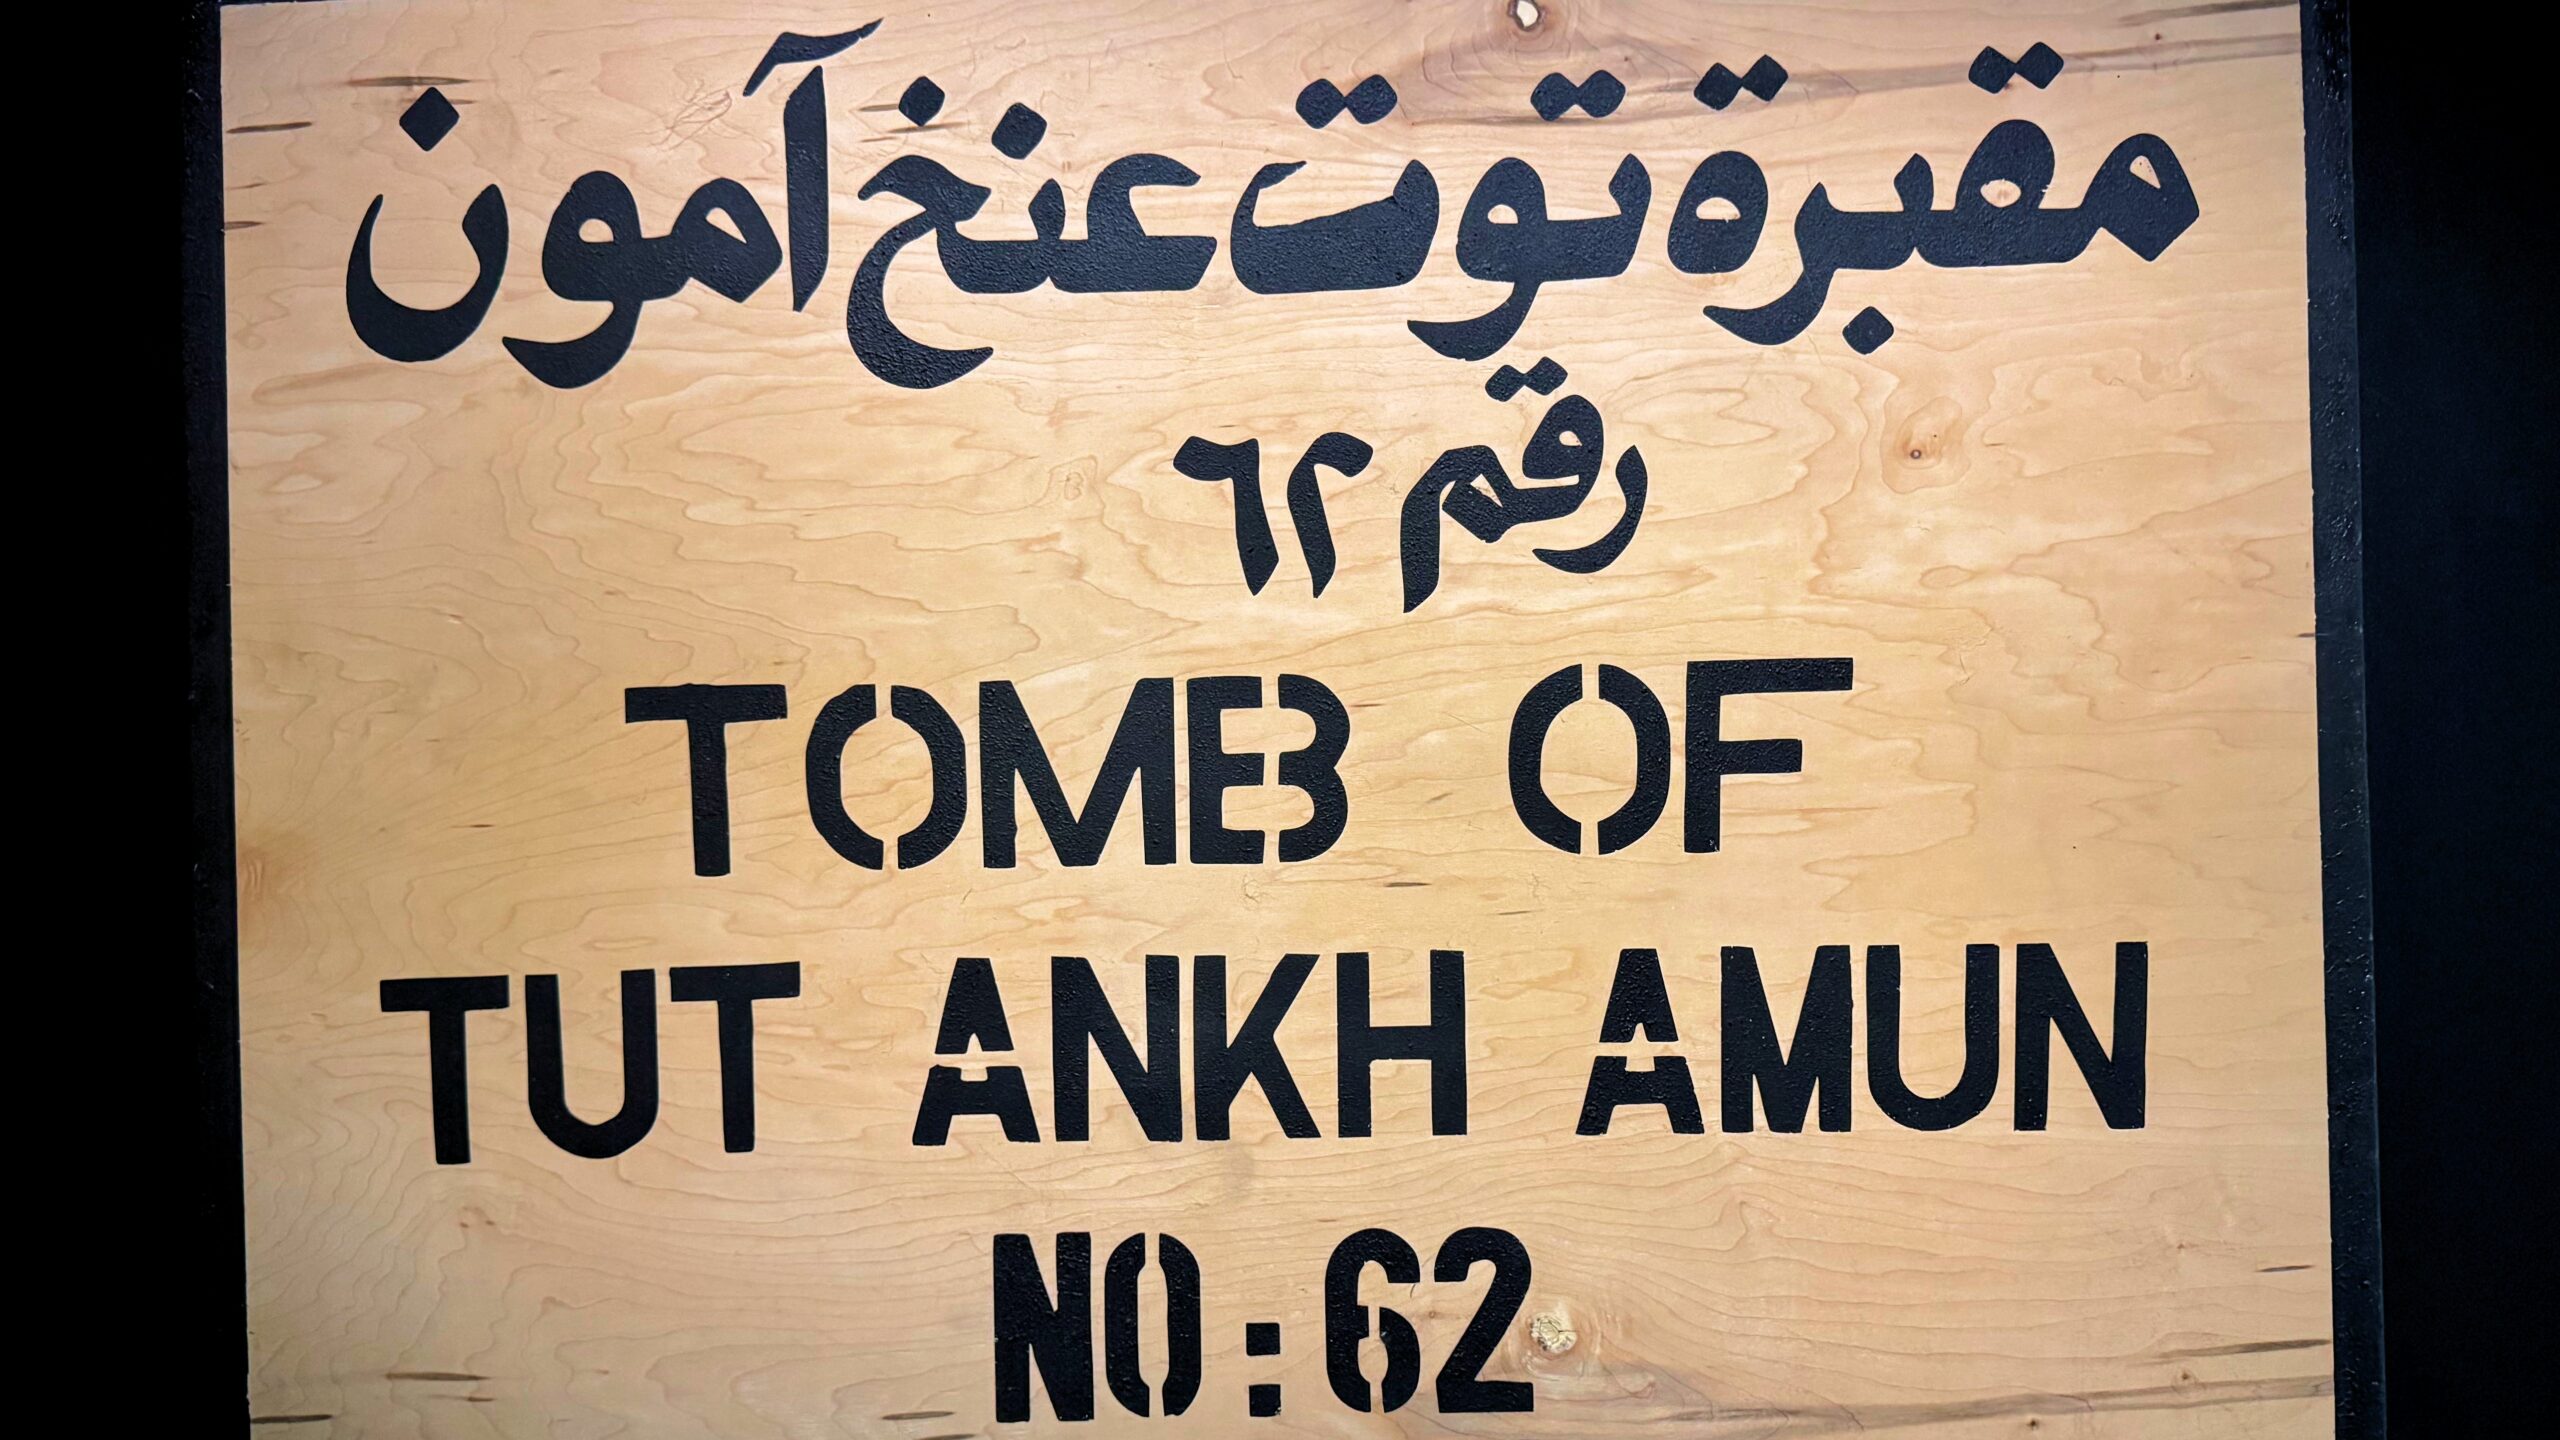 مقبرة توت عنخ آمون
رقم ٦٢
TOMB OF
TUT ANKH AMUN
NO:62